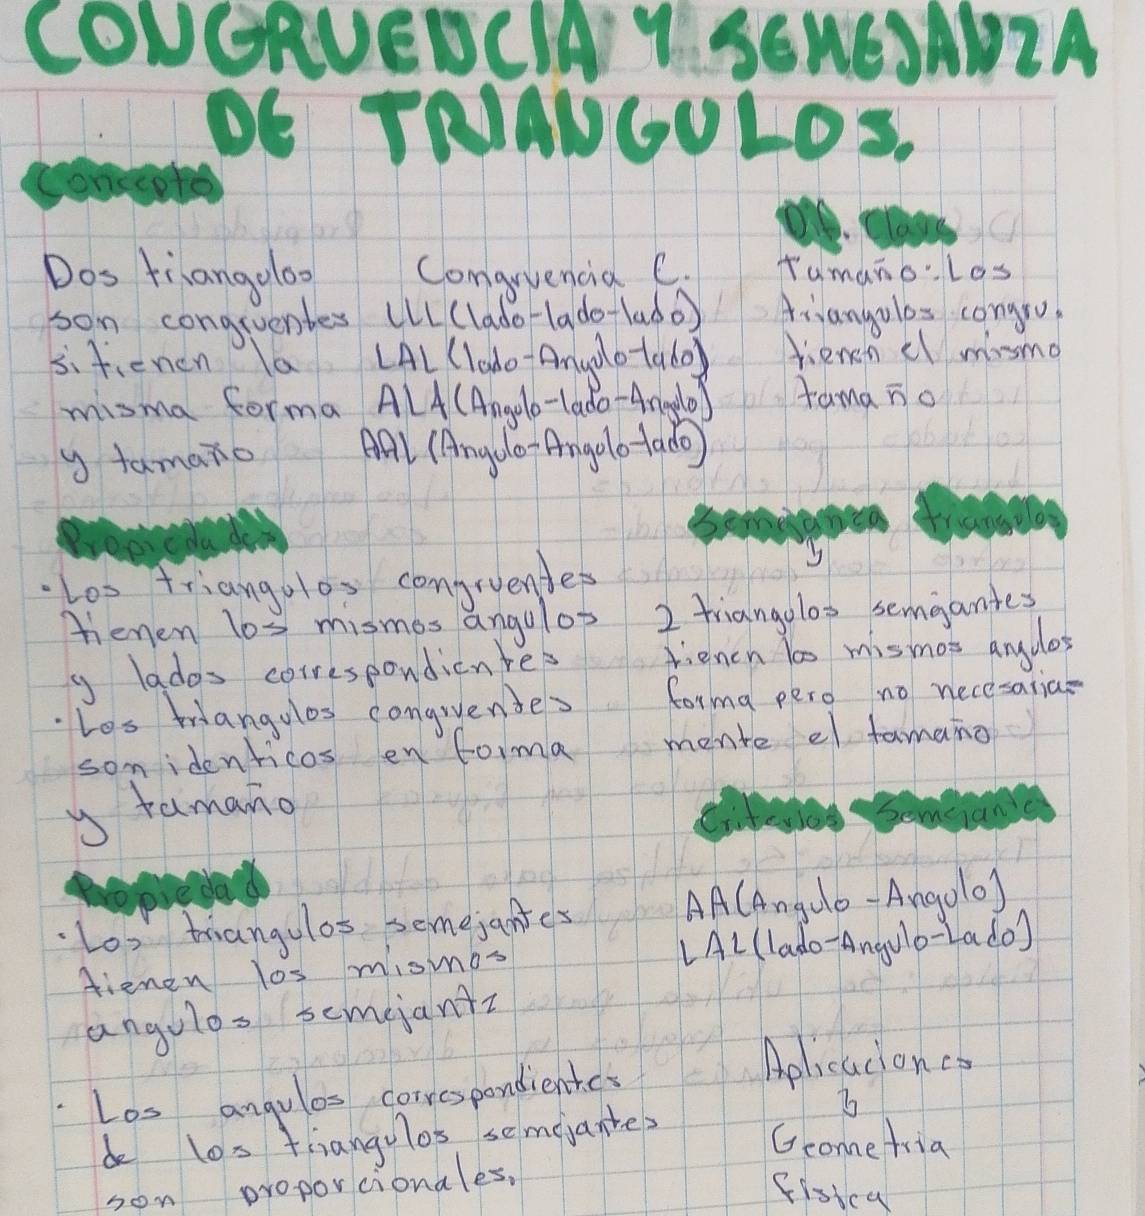 CONGRUENCIA Y SEMEJANZA
DE TRIANGULOS.
Concepto
Dos triangulos
son congruentes
si tienen la
misma forma
y tamaño
Congruencia C.
LLL (lado-lado-lado)
LAL (lado-Angulo-lado)
ALA (Angulo-lado-Angulo)
AAL (Angulo-Angulo-lado)
Dif. Clave
Tamaño: Los
triangulos congru.
tienen el mismo
tamaño
Propiedades
• Los triangulos congruentes
tienen los mismos angulos
y lados correspondientes
• Los triangulos congruentes
son identicos en forma
y tamaño
Semejanza triangulos
↳
2 triangulos semejantes
tienen los mismos angulos
forma pero no necesaria-
mente el tamaño
Propiedad
• Los triangulos semejantes
tienen los mismos
angulos semejantz
• Los angulos correspondientes
de los triangulos semejantes
son proporcionales.
Criterios Semejantes
AA (Angulo - Angulo)
LAL (lado-Angulo-Lado)
Aplicaciones
↳
Geometria
fisica